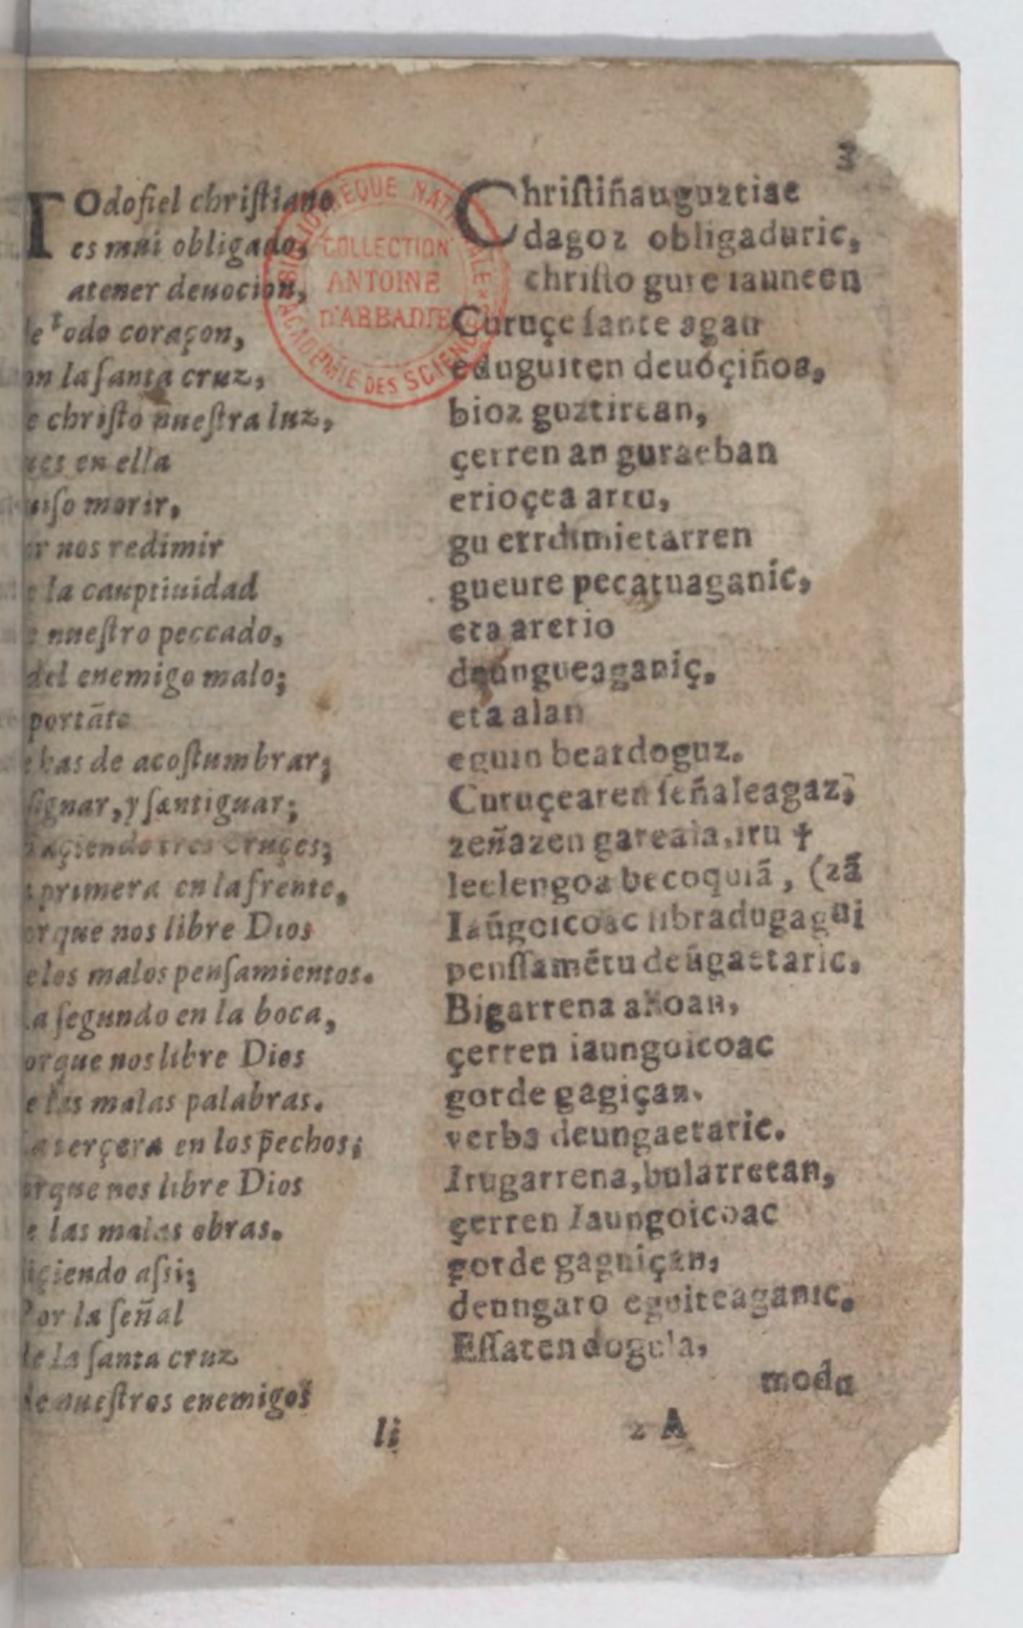 3
TOdofiel chriſtiano
es mui obligado,
atener deuocion,
de todo coraçon,
on laſanta cruz,
e chriſto nueſtra luz,
ues en ella
uiſo morir,
or nos redimir
e la cauptiuidad
e nueſtro peccado,
del enemigo malo;
portãto
e has de acoſtumbrar;
ſignar, y ſantiguar;
haçiendo tres cruçes;
a primera en lafrente,
orque nos libre Dios
e los malos penſamientos.
La ſegundo en la boca,
orque nos libre Dios
e las malas palabras.
La terçera en los pechos;
orque nos libre Dios
e las malas obras.
içiendo aſsi;
Por la ſeñal
de la ſanta cruz
de nueſtros enemigos
li
Chriſtiñauguztiae
dagoz obligaduric,
chriſto gure iauneen
Curuçe ſante agau
eduguiten deuóçiñoa,
bioz guztirean,
çerren an guraeban
erioçea artu,
gu errdimietarren
gueure pecatuaganic,
eta aretio
deungueaganiç.
eta alan
eguin beardoguz.
Curuçearen ſeñaleagaz;
zeñazen gareala, iru ✝
leelengoa becoquiã, (zã
Iaũgoicoac libradugagui
penſſamẽtu deũgaetaric,
Bigarrena ahoan,
çerren iaungoicoac
gorde gagiçan.
verba deungaetaric.
Irugarrena, bularretan,
çerren Iaungoicoac
gorde gaguiçan,
deungaro eguiteaganic.
Eſſaten dogula,
modu
2 A
BIBLIOTHÈQUE NATIONALE
COLLECTION
ANTOINE
D'ABBADIE
ACADÉMIE DES SCIENCES